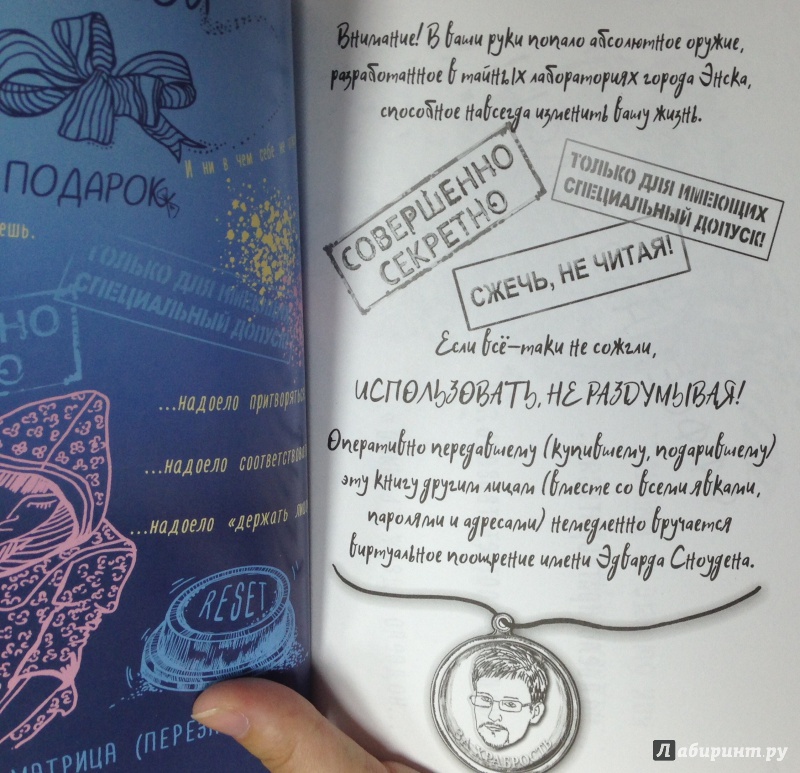 ПОДАРОК
И ни в чем себе не
ешь.
ТОЛЬКО ДЛЯ
СПЕЦИАЛЬНЫЙ ДОПУСК!
НО
...надоело притворяться
...надоело соответствоват
...надоело «держать
RESET
МАТРИЦА
Внимание! В ваши руки попало абсолютное оружие,
разработанное в тайных лабораториях города Энска,
способное навсегда изменить вашу жизнь.
СОВЕРШЕННО
СЕКРЕТНО
ТОЛЬКО ДЛЯ ИМЕЮЩИХ
СПЕЦИАЛЬНЫЙ ДОПУСК!
СЖЕЧЬ, НЕ ЧИТАЯ!
Если всё-таки не сожгли,
ИСПОЛЬЗОВАТЬ, НЕ РАЗДУМЫВАЯ!
Оперативно передавшему (купившему, подарившему)
эту книгу другим лицам (вместе со всеми явками,
паролями и адресами) немедленно вручается
виртуальное поощрение имени Эдварда Сноудена.
ЗА ХРАБРОСТЬ
Лабиринт.ру